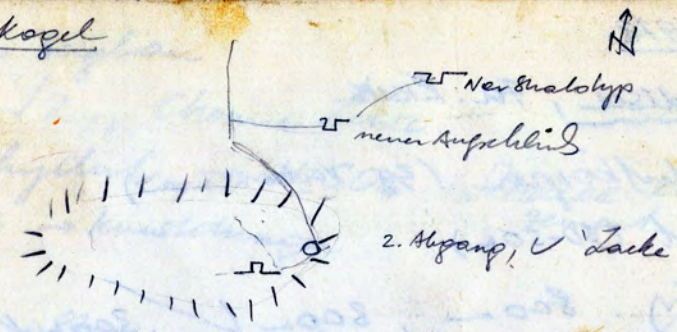 Kogel
N
Neostratotyp
neuer Aufschluß
2. Abgang,